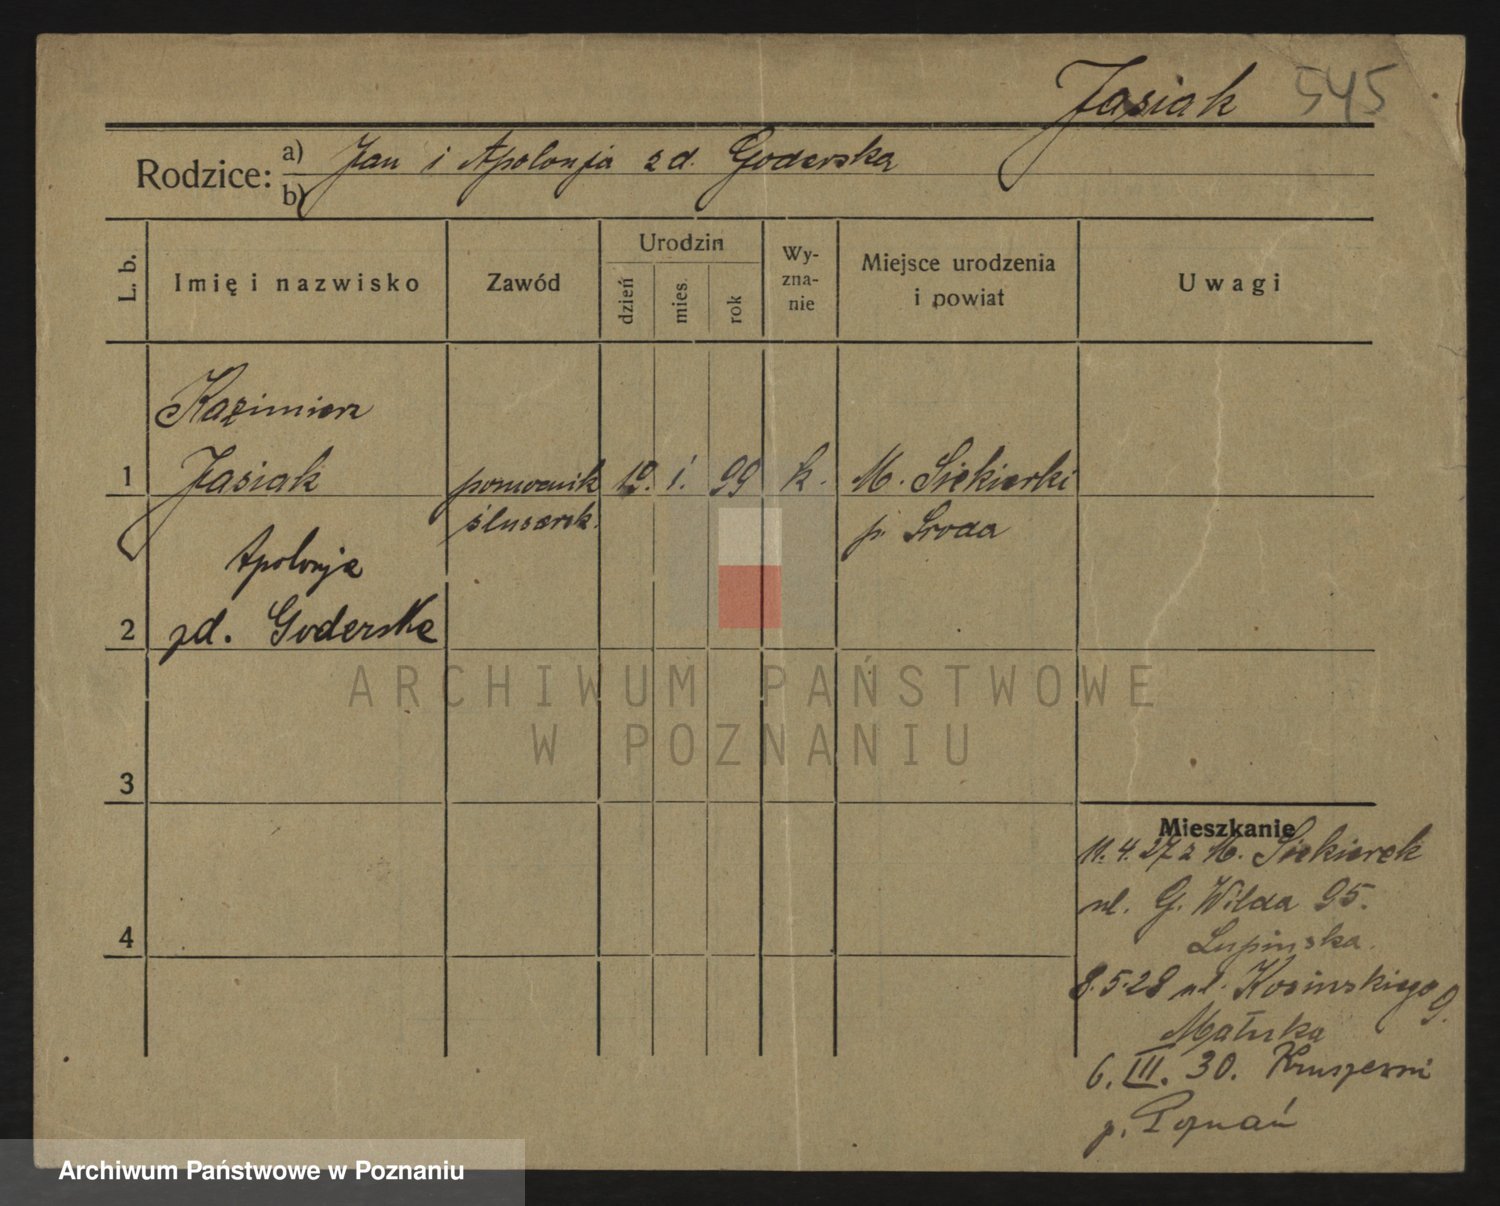 Jasiak 545
Rodzice: a) Jan i Apolonja zd. Goderska
b)
L. b. Imię i nazwisko Zawód Urodzin dzień mies. rok Wy-zna-nie Miejsce urodzenia i powiat Uwagi
Kazimierz
1 Jasiak pomocnik 19. 1. 99 k. M. Siekierki
ślusarsk. p. Sroda
Apolonja
2 zd. Goderska
ARCHIWUM PAŃSTWOWE
W POZNANIU
3
Mieszkanie
11.4.27 z M. Siekierek
ul. G. Wilda 95.
4
Lupinska.
8.5.28 ul. Kosinskiego 9.
Małuska
6. III. 30. Kruszewni
p. Poznań
Archiwum Państwowe w Poznaniu